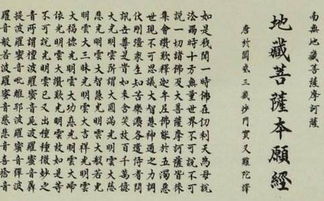 南無地藏菩薩摩訶薩
地藏菩薩本願經
唐于闐國三藏沙門實叉難陀譯
如是我聞一時佛在忉利天為母說
法爾時十方無量世界不可說不可
說一切諸佛及大菩薩摩訶薩皆來
集會讚歎釋迦牟尼佛能於五濁惡
世現不可思議大智慧神通之力調
伏剛彊眾生知苦樂法各遣侍者問
訊世尊是時如來含笑放百千萬億
大光明雲所謂大圓滿光明雲大慈
悲光明雲大智慧光明雲大般若光
明雲大三昧光明雲大吉祥光明雲
大福德光明雲大功德光明雲大歸
依光明雲大讚歎光明雲放如是等
不可說光明雲已又出種種微妙之
音所謂檀波羅蜜音尸波羅蜜音羼
提波羅蜜音毗離耶波羅蜜音禪波
羅蜜音般若波羅蜜音慈悲音喜捨音